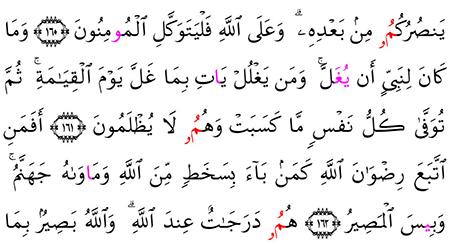 يَنصُرُكُمُۥ مِنۢ بَعْدِهِۦۗ وَعَلَى اَللَّهِ فَلْيَتَوَكَّلِ اِلْمُومِنُونَ ﴿١٦٠﴾ وَمَا
كَانَ لِنَبِيٍّ أَن يُغَلَّۖ وَمَن يَغْلُلْ يَاتِ بِمَا غَلَّ يَوْمَ اَلْقِيَٰمَةِۚ ثُمَّ
تُوَفَّىٰ كُلُّ نَفْسٍ مَّا كَسَبَتْ وَهُمُۥ لَا يُظْلَمُونَ ﴿١٦١﴾ أَفَمَنِ
اِتَّبَعَ رِضْوَٰنَ اَللَّهِ كَمَنۢ بَآءَ بِسَخَطٍ مِّنَ اَللَّهِ وَمَاوَىٰهُ جَهَنَّمُۚ
وَبِيسَ اَلْمَصِيرُ ﴿١٦٢﴾ هُمُۥ دَرَجَٰتٌ عِندَ اَللَّهِۗ وَاللَّهُ بَصِيرُۢ بِمَا